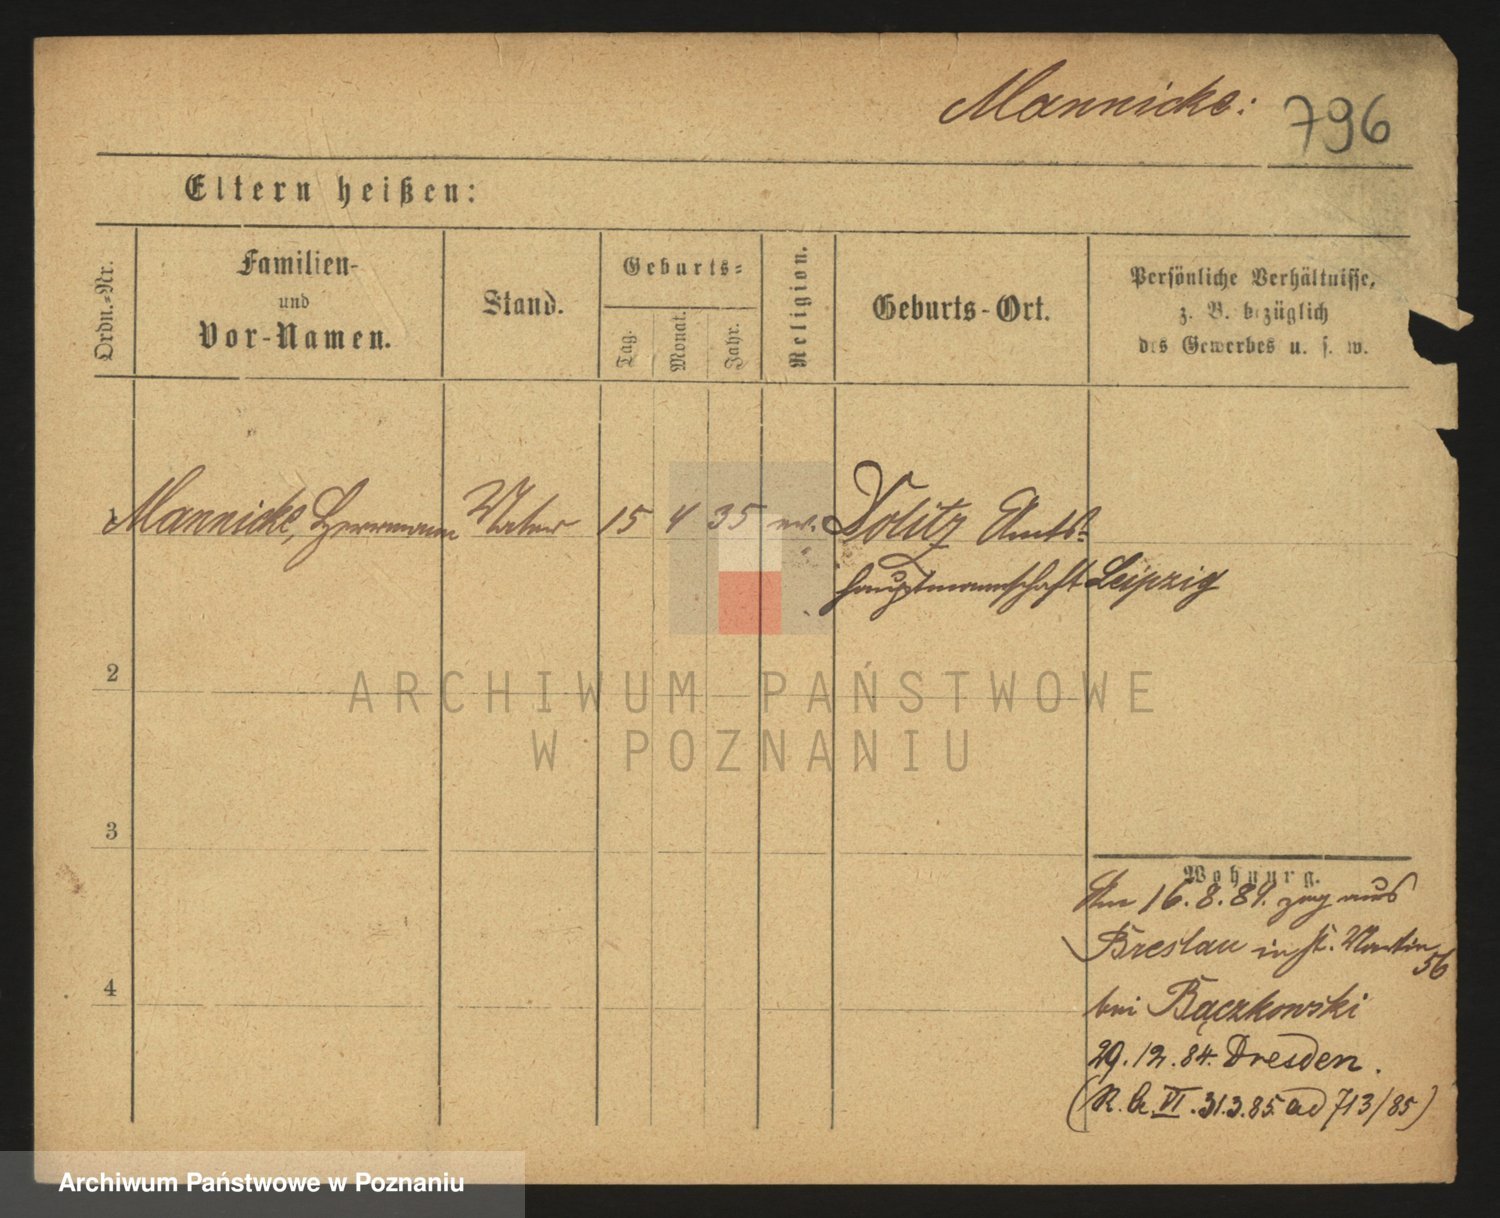 Mannicke:
796
Eltern heißen:
Ordn.-Nr.
Familien-
und
Vor-Namen.
Stand.
Geburts-
Tag.
Monat.
Jahr.
Religion.
Geburts-Ort.
Persönliche Verhältnisse,
z. B. bezüglich
des Gewerbes u. s. w.
1 Mannicke, Herrmann Vater 15 4 35 ev. Dolitz Amts-
hauptmannschaft Leipzig
2
3
4
Wohnung.
Am 16.8.84. zog aus
Breslau in St. Martin 56
bei Bączkowski
29.12.84. Dresden.
(R. b. VI. 31.3.85. ad 713/85)
ARCHIWUM PAŃSTWOWE
W POZNANIU
Archiwum Państwowe w Poznaniu